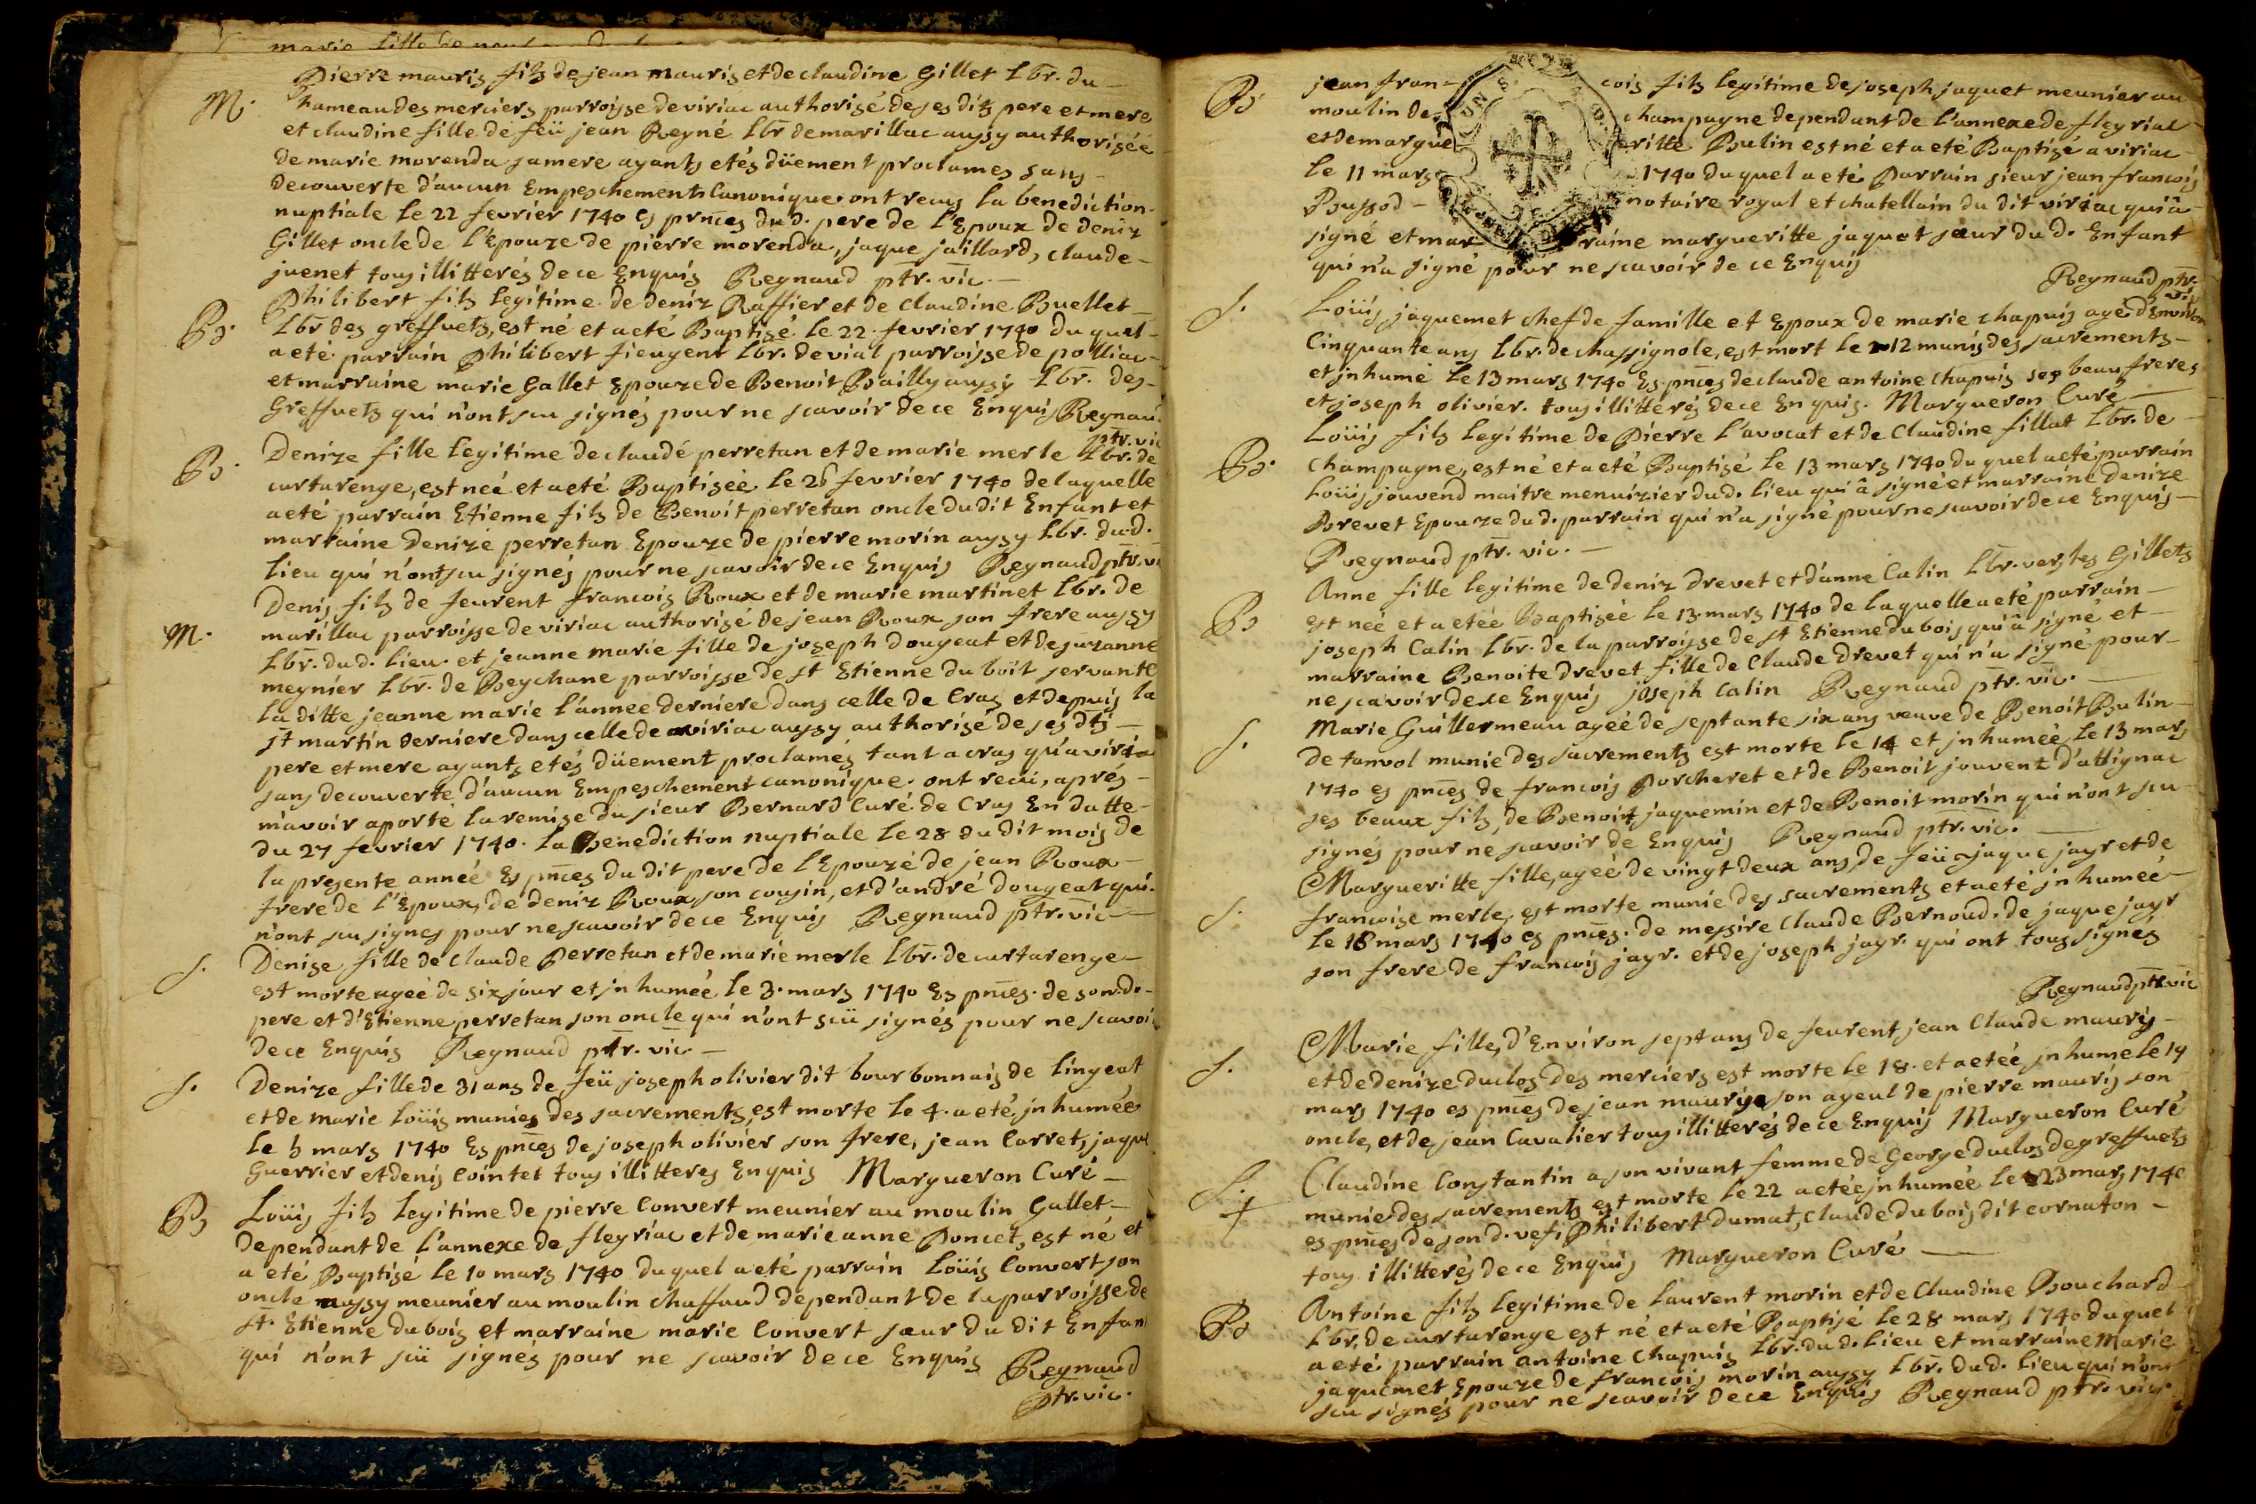 marie fille de
Pierre mauris fils de jean mauris et de claudine Gillet Lbr. du
M. hameau des merciers parroisse de viriac authorisé de ses dits pere et mere
et claudine fille de feü jean Regné Lbr de marillac aussy authorisée
de marie morenda sa mere ayants etés düement proclames sans
decouverte d'aucun Empeschements Canonique ont recus la benediction
nuptiale le 22 fevrier 1740 es prnces du d. pere de l'Epoux de Deniz
Gillet oncle de l'Epouze de pierre morenda, jaque jaillard, claude
juenet tous illitterés de ce Enquis Regnaud ptr. vic.
Philibert fils legitime de deniz Raffier et de claudine Buellet
B. Lbr des greffuets, est né et a eté Baptisé le 22 fevrier 1740 du quel
a eté parrain Philibert fieugent Lbr. de vial parroisse de polliac
et marraine marie Gallet Epouze de Benoit Bailly aussy Lbr. des
Greffuets qui n'ont scu signés pour ne scavoir de ce Enquis Regnau
ptr. vic
Denize fille legitime de claude perretan et de marie merle Lbr. de
B. curtarenge, est neé et a eté Baptiseé le 26 fevrier 1740 de laquelle
a eté parrain Etienne fils de Benoit perretan oncle du dit Enfant et
marraine Denize perretan Epouze de pierre morin aussy Lbr. du d.
lieu qui n'ont scu signés pour ne scavoir de ce Enquis Regnaud ptr. vi
Denis fils de feurent francois Roux et de marie martinet Lbr. de
M. marillac parroisse de viriac authorisé de jean Roux son frere aussy
Lbr. du d. lieu. et jeanne marie fille de joseph dougeat et de suzanne
meynier Lbr. de Beychane parroisse de st Etienne du boit servante
la ditte jeanne marie l'année derniere dans celle de Cras et depuis la
st martin derniere dans celle de viriac aussy authorisé de ses dts
pere et mere ayants etés düement proclamés tant a cras qu'a viria
sans decouverte d'aucun Empeschement canonique. ont recu, aprés
m'avoir aporté la remise du sieur Bernard Curé de Cras En datte
du 27 fevrier 1740. la Benediction nuptiale le 28 du dit mois de
la presente annéé Es pnces du dit pere de l'Epouzé de jean Roux
frere de l'Epoux, de deniz Roux son cousin, et d'andré dougeat qui
n'ont scu signes pour ne scavoir de ce Enquis Regnaud ptr. vic
S. Denise fille de claude Perretan et de marie merle Lbr. de curtarenge
est morte ageé de six jour et jnhumeé le 3. mars 1740 Es pnces. de son d.
pere et d'Etienne perretan son oncle qui n'ont scü signés pour ne scavoi
de ce Enquis Regnaud ptr. vic
S. Denize fille de 31 ans de feü joseph olivier dit bourbonnais de lingeat
et de marie loüis munies des sacrements, est morte le 4. a eté jnhumée
le 5 mars 1740 Es pnces de joseph olivier son frere, jean Carret, jaque
Guerrier et denis Cointet tous illitteres Enquis Margueron Curé
B Loüis fils legitime de pierre Convert meunier au moulin Gallet
dependant de l'annexe de fleyriac et de marie anne Poncet, est né et
a eté Baptisé le 10 mars 1740 du quel a eté parrain Loüis Convert son
oncle aussy meunier au moulin chaffaud dependant de la parroisse de
st. Etienne du bois et marraine marie Convert sœur du dit Enfan
qui n'ont scü signés pour ne scavoir de ce Enquis Regnaud
Ptr. vic.
B. jean fran- cois fils legitime de joseph jaquet meunier au
moulin de champagne dependant de l'annexe de fleyriac
et de margue ritte Bulin est né et a eté Baptisé a viriac
le 11 mars 1740 du quel a eté Parrain sieur jean francois
Bussod notaire royal et chatellain du dit viriac qui â
signé et mar raine margueritte jaquet sœur du d. Enfant
qui n'a signé pour ne scavoir de ce Enquis
Regnaud ptr.
vic
S. Loüis jaquemet chef de famille et Epoux de marie chapuis agé d'Environ
Cinquante ans Lbr. de chassignole, est mort le 12 munis des sacrements
et jnhumé le 13 mars 1740 Es pnces de claude antoine chapuis ses beau freres
et joseph olivier. tous illitterés de ce Enquis. Margueron Curé
Loüis fils legitime de Pierre l'avocat et de Claudine fillat Lbr. de
B. Champagne, est né et a eté Baptisé le 13 mars 1740 du quel a eté parrain
Loüis jouvend maitre menuizier du d. lieu qui â signé et marraine denize
Brevet Epouze du d. parrain qui n'a signé pour ne scavoir de ce Enquis
Regnaud ptr. vic.
Anne fille legitime de deniz drevet et d'anne Calin Lbr. vers les Gillets
B est neé et a etéé Baptiseé le 13 mars 1740 de la quelle a eté parrain
joseph Calin Lbr. de la parroisse de st Etienne du bois qui a signé et
marraine Benoite drevet fille de Claude drevet qui n'a signé pour
ne scavoir de ce Enquis joseph Calin Regnaud ptr. vic.
S. Marie Guillermeau ageé de septante six ans veuve de Benoit Bulin
de tanvol munie des sacrements est morte le 14 et jnhumeé le 13 mars
1740 es pnces de francois Porcheret et de Benoit jouvent d'attignac
ses beaux fils, de Benoit jaquemin et de Benoit morin qui n'ont scu
signés pour ne scavoir de Enquis Regnaud ptr. vic.
S. Margueritte fille, ageé de vingt deux ans, de feü jaque jayr et de
francoise merle, est morte munie des sacrements et a eté jnhumeé
le 18 mars 1740 es pnces. de messire Claude Bernoud. de jaque jayr
son frere de francois jayr. et de joseph jayr. qui ont tous signés
Regnaud ptr. vic
S. Marie fille, d'Environ sept ans de feurent jean Claude mauris
et de denize duclos des merciers est morte le 18. et a etéé jnhume le 19
mars 1740 es pnces de jean mauris son ayeul de pierre mauris son
oncle, et de jean Cavalier tous illitterés de ce Enquis Margueron Curé
S. Claudine Constantin a son vivant femme de George duclos de greffuets
munie des sacrements est morte le 22 a etéé jnhumeé le 23 mars 1740
es pnces de son d. vefi Philibert dumat, claude dubois dit cornaton
tous illitterés de ce Enquis Margueron Curé
B Antoine fils legitime de laurent morin et de Claudine Bouchard
Lbr. de curtarenge est né et a eté Baptisé le 28 mars 1740 du quel
a eté parrain antoine chapuis Lbr. du d. lieu et marraine Marie
jaquemet Epouze de francois morin aussy Lbr. du d. lieu qui n'ont
scu signés pour ne scavoir de ce Enquis Regnaud ptr. vic.